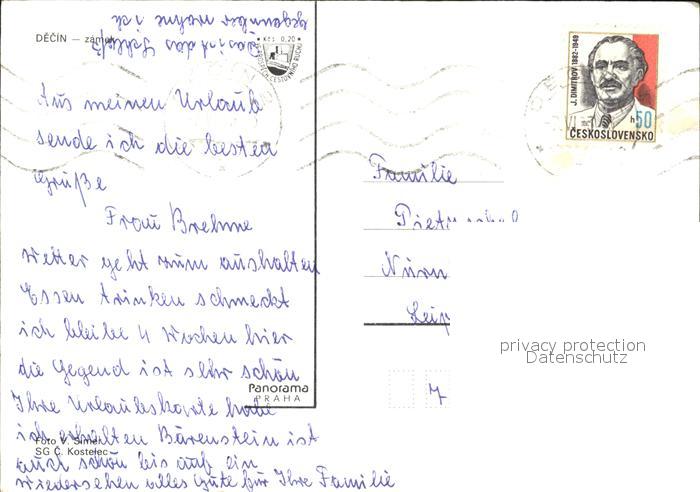 DĚČÍN — zámek
das ist das Schloß
gegenüber wohne ich
Kčs 0,20
J. DIMITROV 1882-1949
h 50
ČESKOSLOVENSKO
Aus meinen Urlaub
sende ich die besten
Grüße
Frau Brehme
Wetter geht zum aushalten
Essen trinken schmeckt
ich bleibe 4 Wochen hier
die Gegend ist sehr schön
Ihre Urlaubskarte habe
ich erhalten Bärenstein ist
auch schön bis auf ein
wiedersehen alles Gute für Ihre Familie
Familie
Nürn
Leip
7
Panorama
PRAHA
Foto V. Šimek
SG Č. Kostelec
privacy protection
Datenschutz